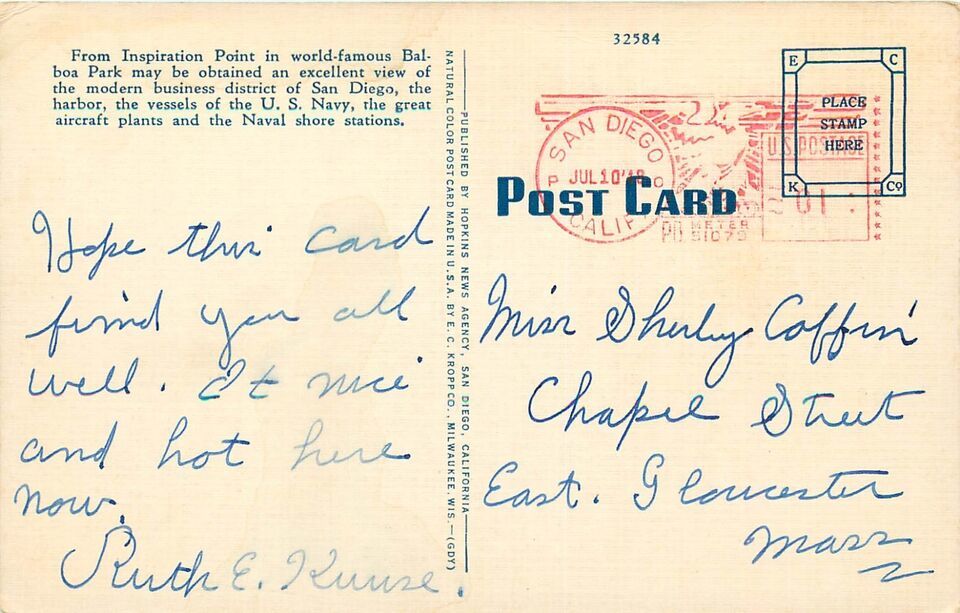 32584
From Inspiration Point in world-famous Bal-
boa Park may be obtained an excellent view of
the modern business district of San Diego, the
harbor, the vessels of the U. S. Navy, the great
aircraft plants and the Naval shore stations.
PUBLISHED BY HOPKINS NEWS AGENCY, SAN DIEGO, CALIFORNIA
NATURAL COLOR POST CARD MADE IN U.S.A. BY E. C. KROPP CO., MILWAUKEE, WIS.—(GDY)
E C
PLACE
STAMP
HERE
K Co
SAN DIEGO
JUL 10 '48
CALIF
U.S. POSTAGE
01
PB METER
51079
POST CARD
Hope this card
find you all
well. It nice
and hot here
now.
Ruth E.
Miss Shirley Coffin
Chapel Street
East. Gloucester
Mass